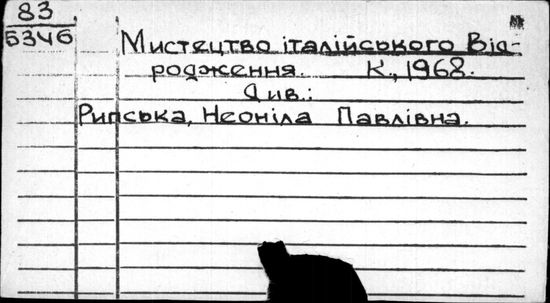 83
Б346
Мистецтво італійського Від-
родження. К., 1968.
Див.:
Рипська, Неоніла Павлівна.